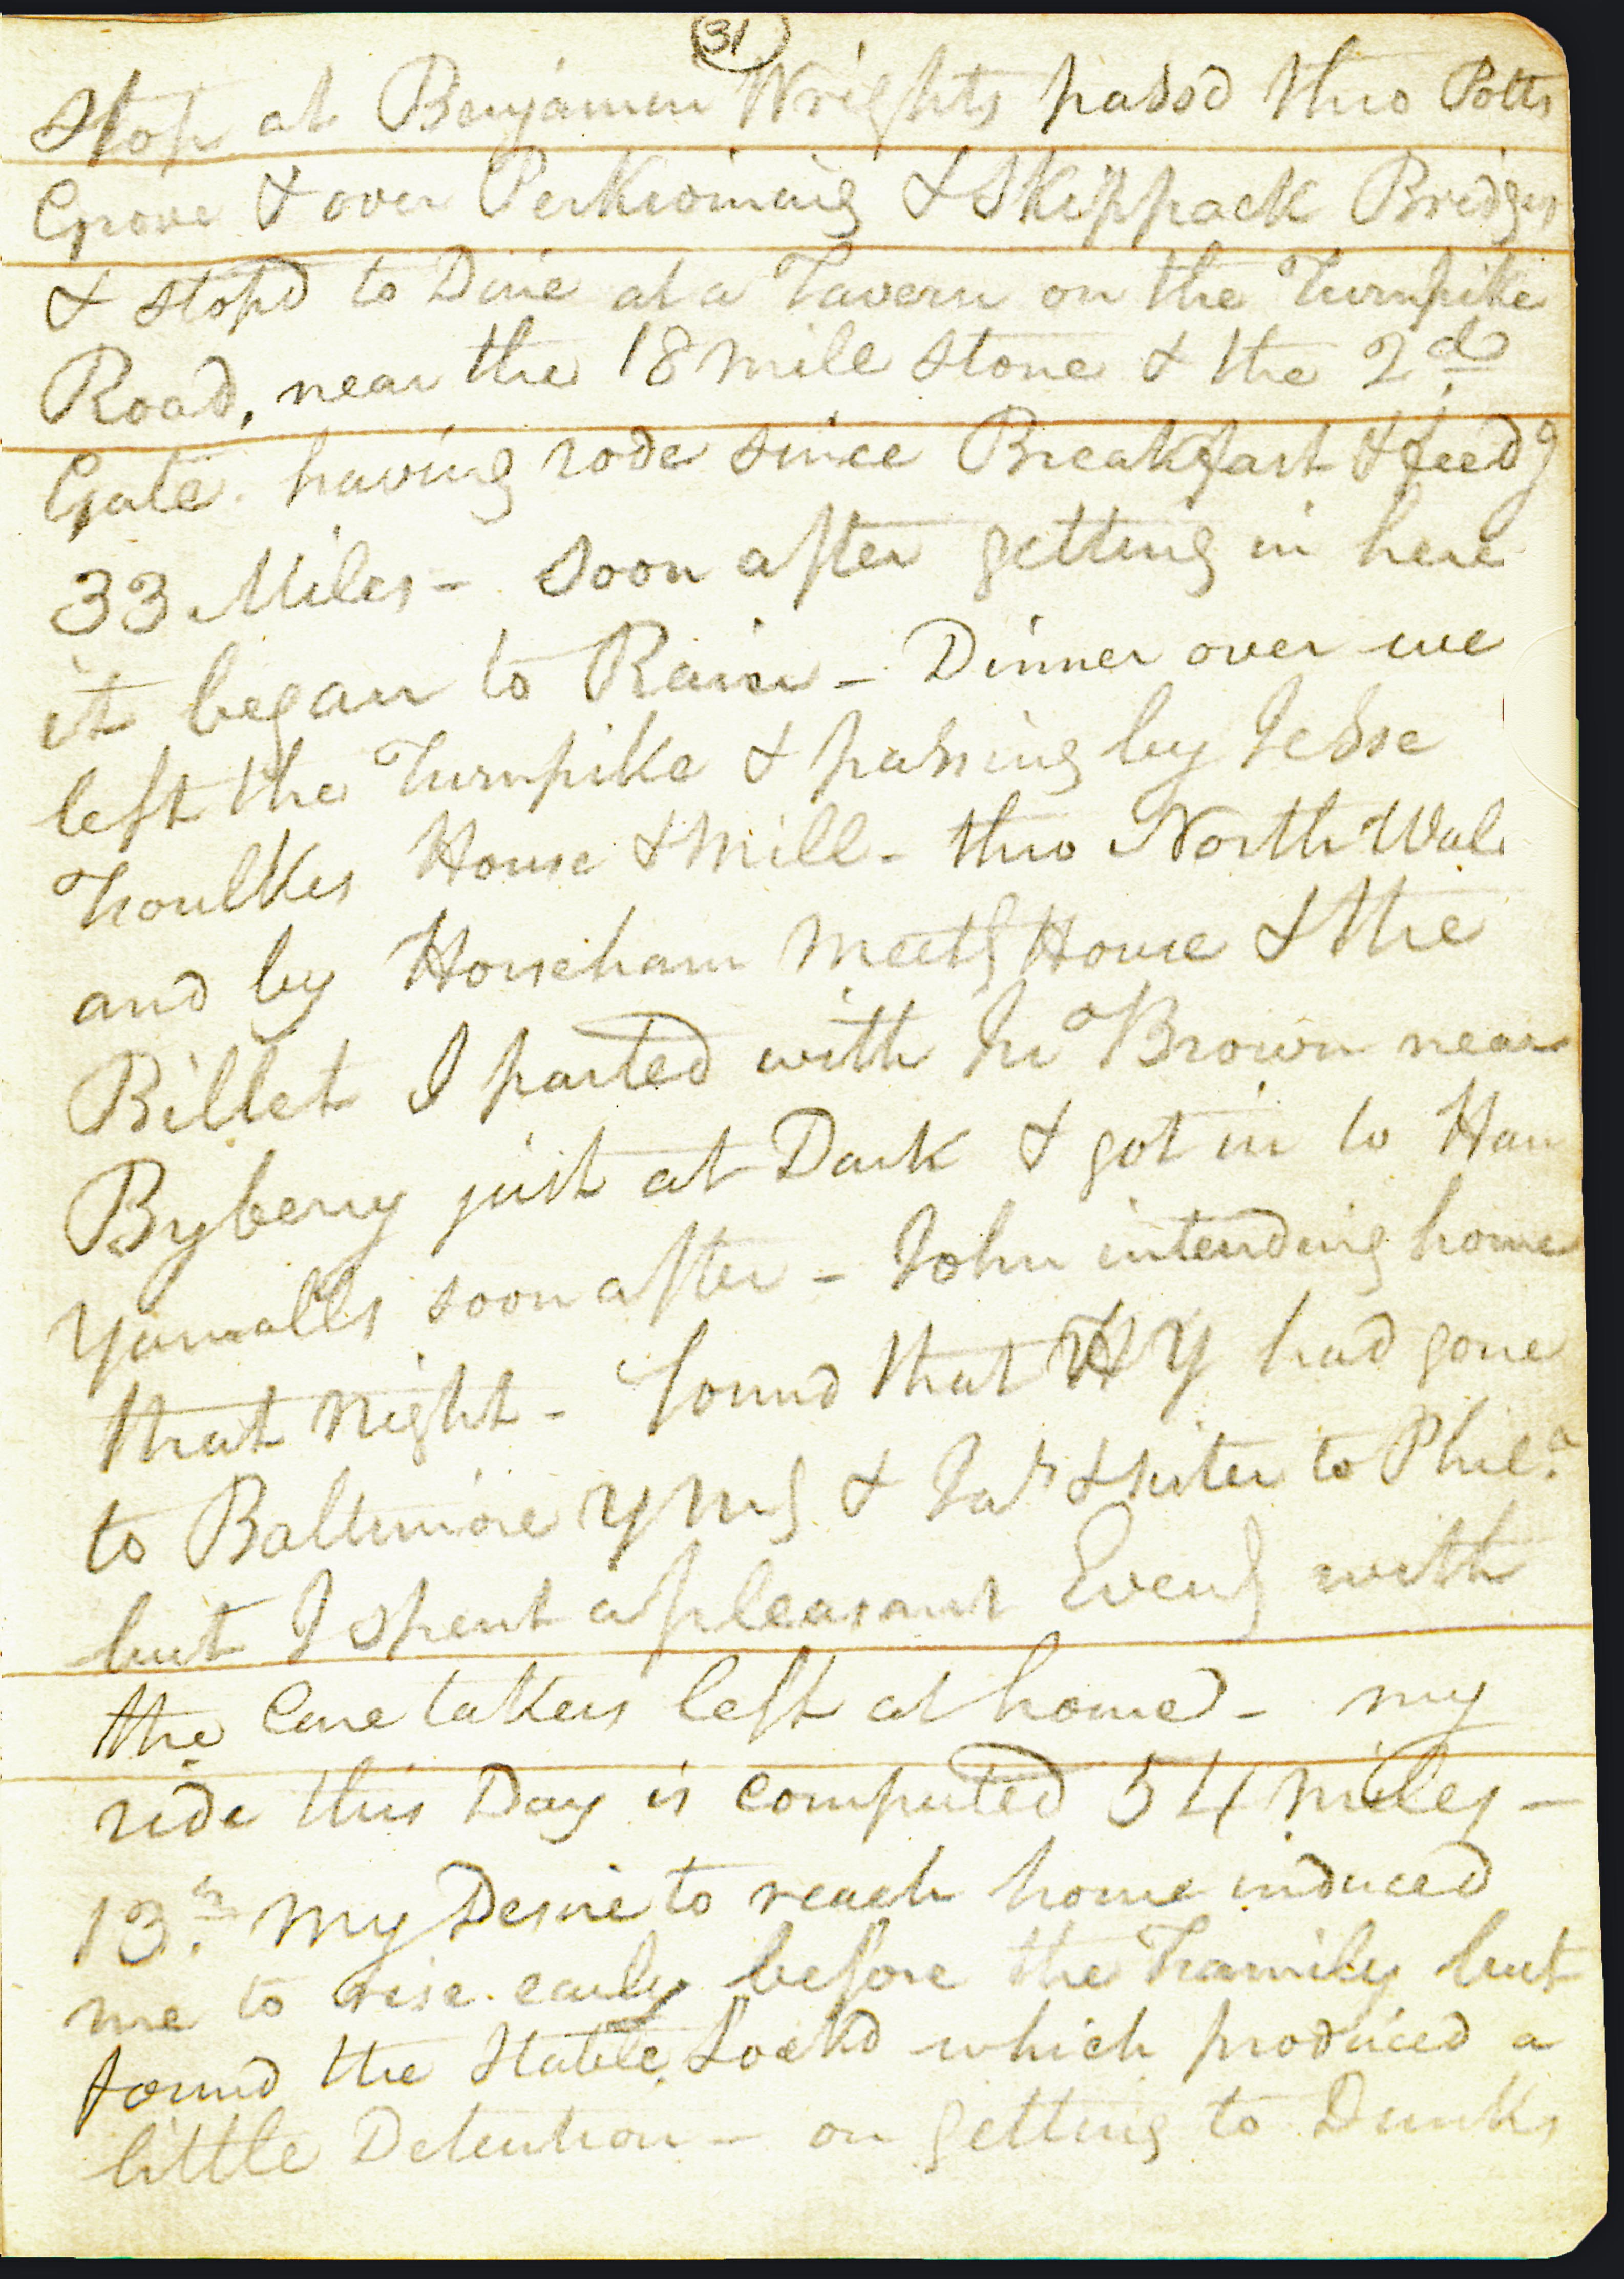 (31)
Stop at Benjamin Wrights passd thro Potts
Grove & over Perkioming & Skippack Bridges
& stopd to Dine at a Tavern on the Turnpike
Road, near the 18 mile stone & the 2d
Gate. having rode since Breakfast & feedg
33 Miles - Soon after getting in here
it began to Rain - Dinner over we
left the Turnpike & passing by Jesse
Foulkes House & Mill - thro North Wal
and by Horseham Meetg House & the
Billet I parted with Jno Brown near
Byberry just at Dark & got in to Han
Yarnalls soon after - John intending home
that Night - found that HY had gone
to Baltimore & Jas & sister to Phila.
but I spent a pleasant Eveng with
the Care takers left at home - my
ride this Day is computed 54 miles -
13th. My Desire to reach home induced
me to rise early before the Family but
found the Stable Lockd which produced a
little Detention - on getting to Dunks